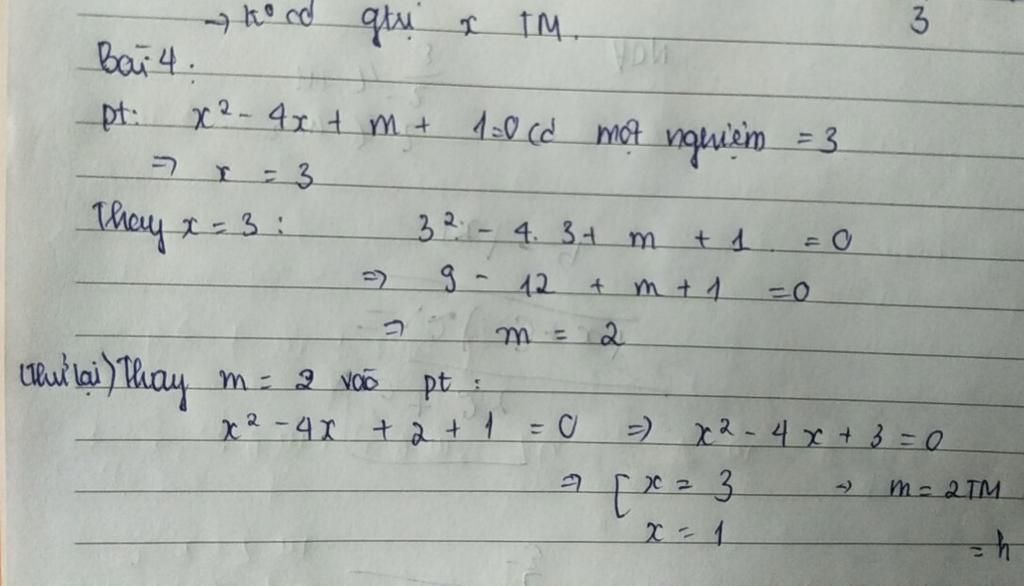 → k° có gtrị x TM.
3
Bài 4:
pt: x² - 4x + m + 1=0 có một nghiệm = 3
⇒ x = 3
Thay x = 3 : 3² - 4. 3 + m + 1 = 0
⇒ 9 - 12 + m + 1 = 0
⇒ m = 2
(thử lại) Thay m = 2 vào pt :
x² - 4x + 2 + 1 = 0 ⇒ x² - 4x + 3 = 0
⇒ [ x = 3 → m = 2 TM
x = 1